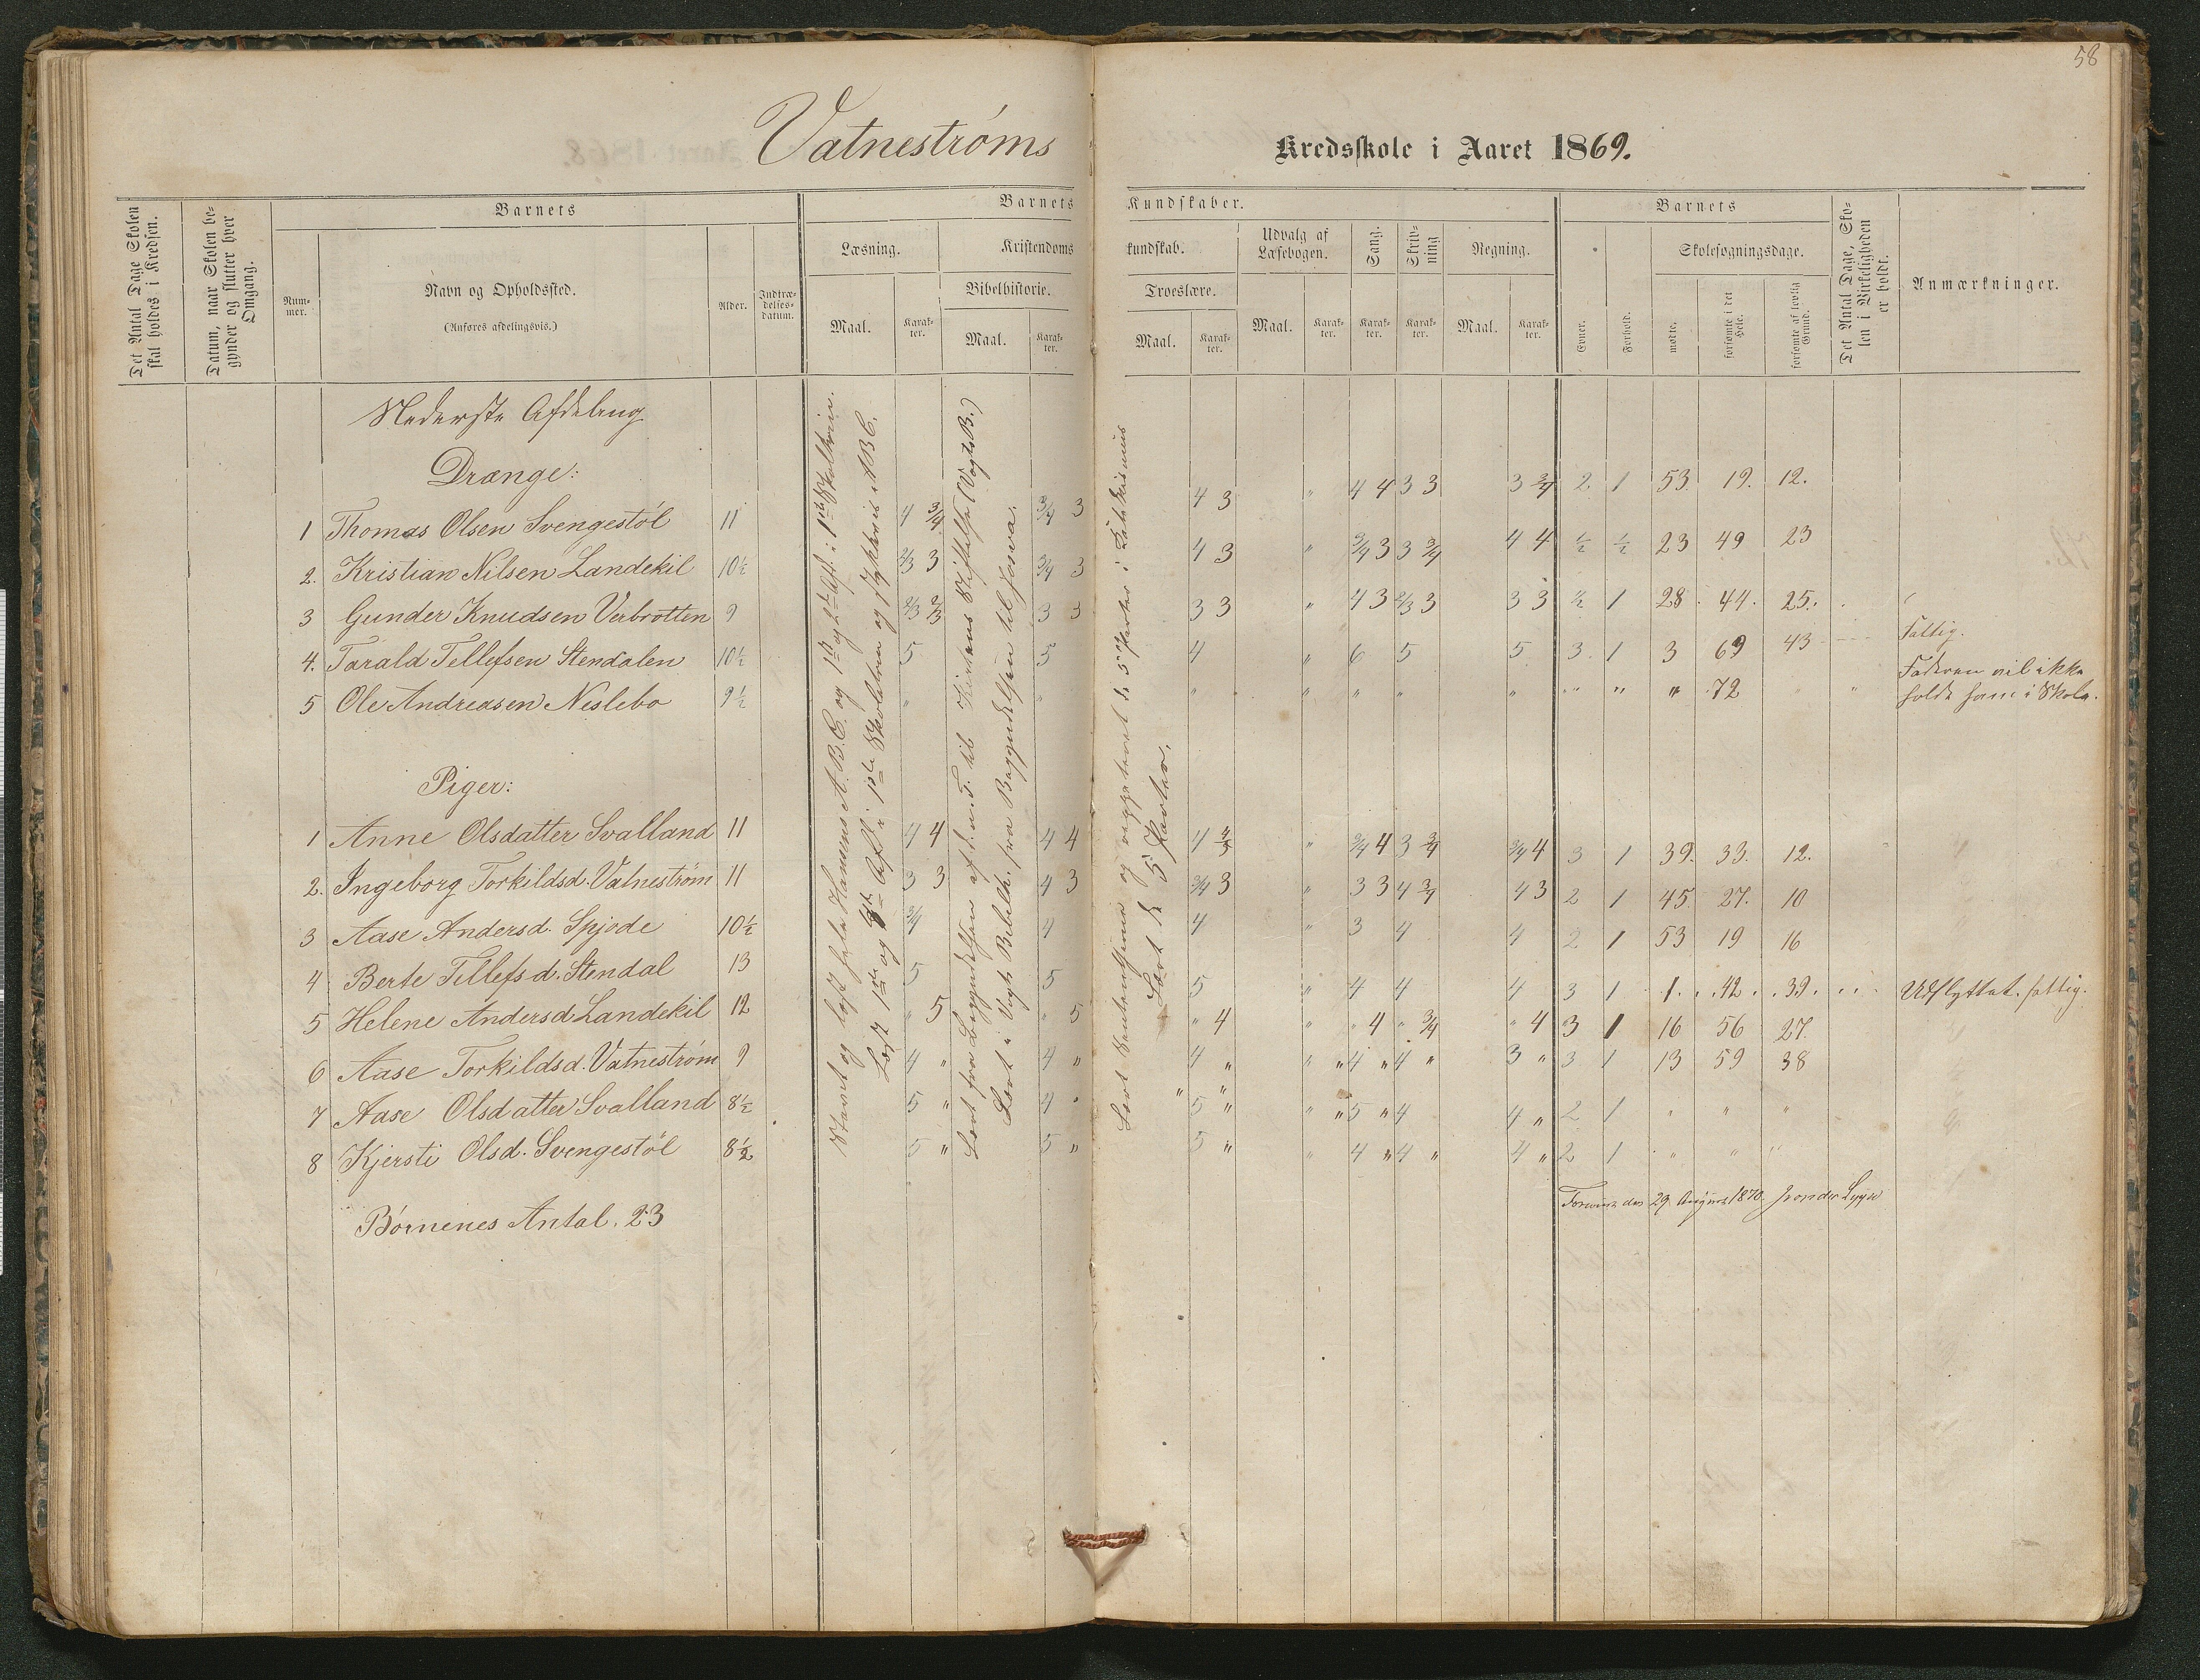 58
Vatneströms Kredsskole i Aaret 1869.
Det Antal Dage Skolen skal holdes i Kredsen.
Datum, naar Skolen begynder og slutter hver Omgang.
Barnets
Nummer.
Navn og Opholdssted.
(Anføres afdelingsvis.)
Alder.
Indtrædelses-datum.
Barnets Kundskaber.
Læsning.
Maal.
Karakter.
Kristendomskundskab.
Bibelhistorie.
Maal.
Karakter.
Troeslære.
Maal.
Karakter.
Udvalg af Læsebogen.
Maal.
Karakter.
Sang.
Karakter.
Skrivning
Karakter.
Regning.
Maal.
Karakter.
Barnets
Evner.
Forhold.
Skolesøgningsdage.
mødte.
forsømte i det Hele.
forsømte af lovlig Grund.
Det Antal Dage, Skolen i Virkeligheden er holdt.
Anmærkninger.
Nederste Afdeling
Drænge:
1 Thomas Olsen Svengestöl 11 4 3/4 3/4 3 4 3 " 4 4 3 3 3 3/4 2. 1 53. 19. 12.
2. Kristian Nilsen Landekil 10½ 2/3 3 3/4 3 4 3 " 3/4 3 3 3/4 4 4 ½ ½ 23 49 23
3 Gunder Knudsen Verbrotten 9 2/3 2/3 3 3 3 3 " 4 3 2/3 3 3 3 ½ 1 28. 44. 25.
4. Tarald Tellefsen Stendalen 10½ 5 5 4 " 6 5 5 3. 1 3 69 43 Fattig.
5 Ole Andreasen Neslebo 9½ " " " " " " " " " " 72 " " Faderen vil ikke
holde ham i Skole.
Piger:
1 Anne Olsdatter Svalland 11 4 4 4 4 4 4/3 " 3/4 4 3 3/4 3/4 4 3 1 39. 33. 12.
2. Ingeborg Torkildsd. Vatneström 11 3 3 4 3 3/4 3 " 3 3 4 3/4 4 3 2 1 45. 27. 10
3 Aase Andersd. Spjode 10½ 3/4 4 4 " 3 4 4 2 1 53 19 16
4 Berte Tellefsd. Stendal 13 5 5 5 " 4 4 4 3 1 1. 42. 39. Udflyttet, fattig.
5 Helene Andersd Landekil 12 " 5 " 5 " 4 " " 4 " 3/4 " 4 3 1 16 56 27.
6 Aase Torkildsd. Vatneström 9 4 " 4 " 4 " " " 4 " 4 " 3 " 3 1 13 59 38
7 Aase Olsdatter Svalland 8½ 5 " 4 " " 5 " " " 5 " 4 4 " 2 1 " " "
8 Kjersti Olsd. Svengestöl 8½ 5 " 5 " 5 " " 4 " 4 " 4 " 2 1 " " "
Børnenes Antal. 23
Stavet og læst hele Hansens A.B.C. og 1ste og 2den Afd. i 1ste Skoletrin.
Læst 1ste og Afd. i 1ste Skoletrin og stykkevis ABC.
Lært fra Begyndelsen af til Kirkens Stiftelse (Vogts B.)
Lært i Vogts Bibelh. fra Begyndelsen til Josva.
Lært og repeteret de 5 Parter i Katekismus
Lært de 5 Parter.
den 29 August 1870.